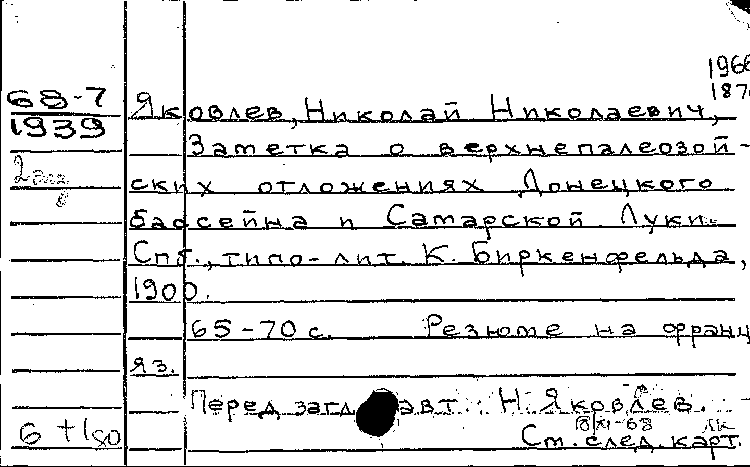 1966
187
68-7
1939
Яковлев, Николай Николаевич,
Заметка о верхнепалеозой-
ских отложениях Донецкого
бассейна и Самарской Луки.
Спб., типо-лит. К. Биркенфельда,
1900.
65-70 с. Резюме на франц
яз.
Перед загл. авт.: Н. Яковлев.
6 + 1
Ст. след. карт.